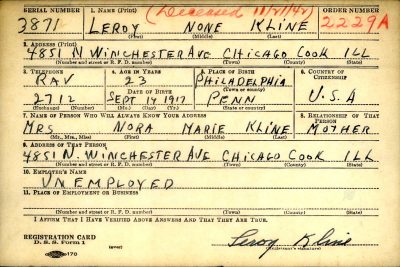 SERIAL NUMBER 1. NAME (Print) (Deceased ORDER NUMBER
3871 LEROY NONE KLINE 2229A
(First) (Middle) (Last)
2. ADDRESS (Print)
4851 N WINCHESTER AVE CHICAGO COOK ILL
(Number and street or R. F. D. number) (Town) (County) (State)
3. TELEPHONE 4. AGE IN YEARS 5. PLACE OF BIRTH 6. COUNTRY OF CITIZENSHIP
RAV 23 PHILADELPHIA
DATE OF BIRTH (Town or county)
2712 SEPT 14 1917 PENN U.S.A
(Exchange) (Number) (Mo.) (Day) (Yr.) (State or country)
7. NAME OF PERSON WHO WILL ALWAYS KNOW YOUR ADDRESS 8. RELATIONSHIP OF THAT PERSON
MRS NORA MARIE KLINE MOTHER
(Mr., Mrs., Miss) (First) (Middle) (Last)
9. ADDRESS OF THAT PERSON
4851 N WINCHESTER AVE CHICAGO COOK ILL
(Number and street or R. F. D. number) (Town) (County) (State)
10. EMPLOYER'S NAME
UNEMPLOYED
11. PLACE OF EMPLOYMENT OR BUSINESS
(Number and street or R. F. D. number) (Town) (County) (State)
I AFFIRM THAT I HAVE VERIFIED ABOVE ANSWERS AND THAT THEY ARE TRUE.
REGISTRATION CARD
D. S. S. Form 1 (over) Leroy Kline
(Registrant's signature)